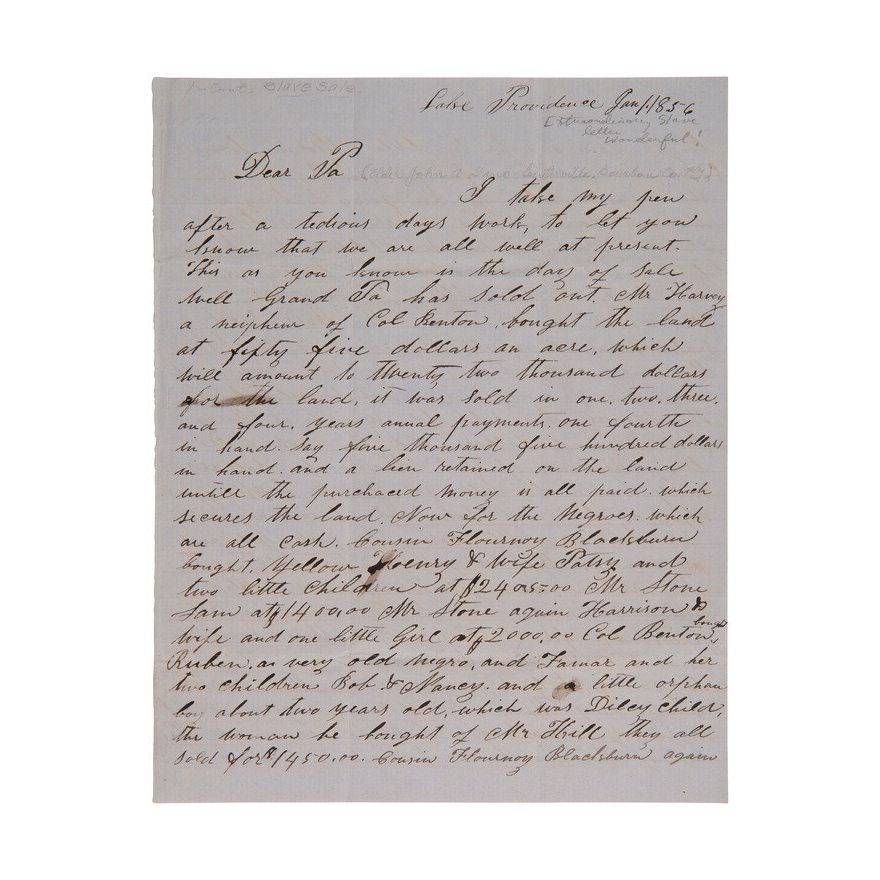 Slave Sale.
Lake Providence Jan 1 1856
Extraordinary Slave
letter
wonderful!
Dear Pa (Elder John A
I take my pen
after a tedious days work, to let you
know that we are all well at present.
This as you know is the day of sale
Well Grand Pa has sold out. Mr Harvey
a neiphew of Col Benton, bought the land
at fifty five dollars an acre, which
will amount to Twenty two thousand dollars
for the land, it was sold in one, two, three,
and four, years anual payments, one fourth
in hand. Say five thousand five hundred dollars
in hand. and a leen retained on the land
untill the purchaced money is all paid. which
secures the land. Now for the Negroes. which
are all cash. Cousin Flournoy Blackburn
bought, Yellow Henry & wife Patsy and
two little children at $2405.00 Mr Stone
Sam at $1400,00 Mr Stone again Harrison &
wife and one little Girl at $2000,00 Col Benton, bought
Ruben, as very old negro, and Tamar and her
two children Bob & Nancy. and a little orphan
boy about two years old, which was Diley child,
the woman he bought of Mr Hill they all
sold for $1450.00. Cousin Flournoy Blackburn again